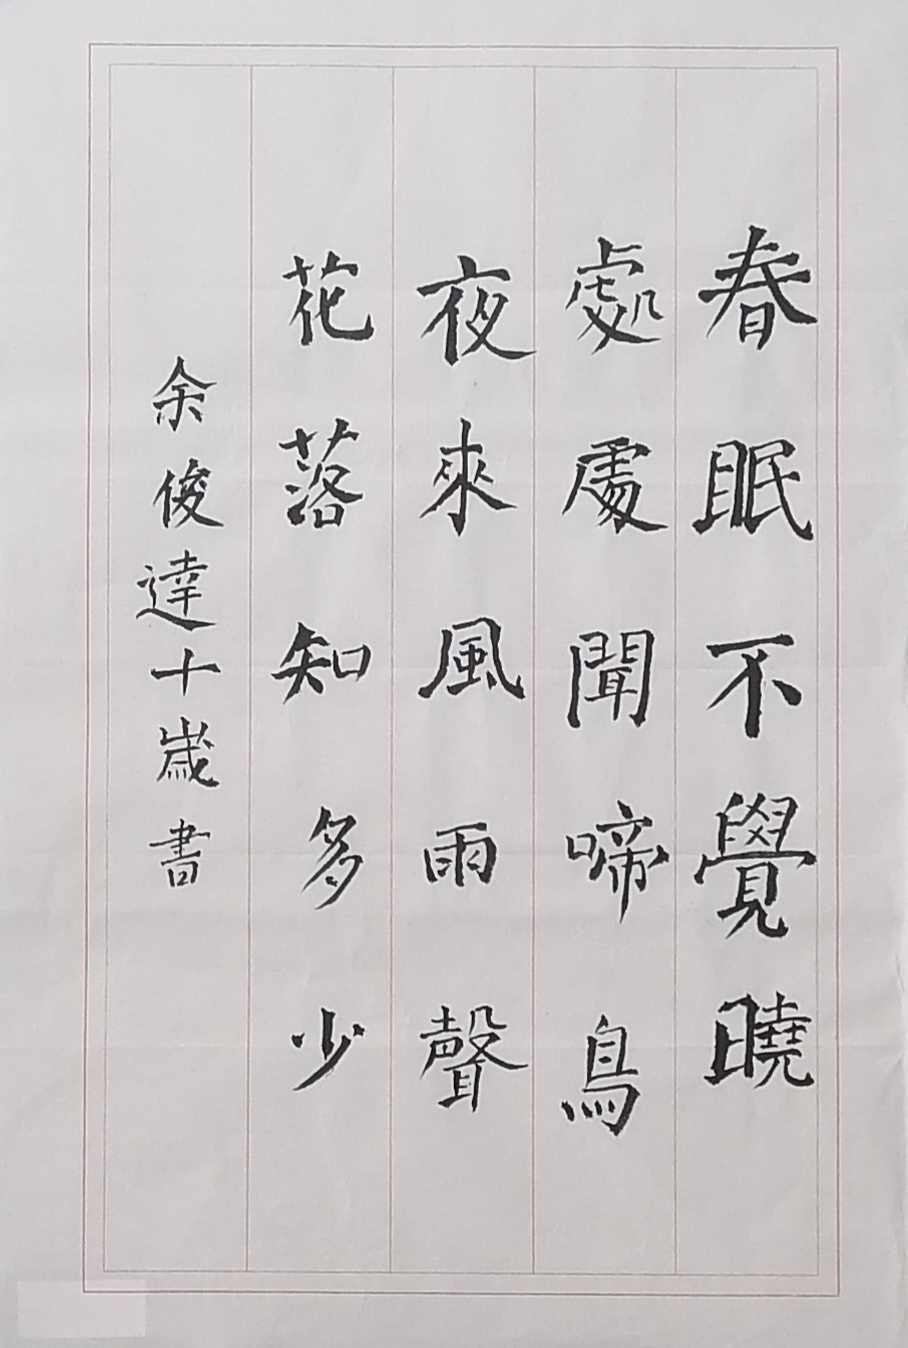 春眠不覺曉
處處聞啼鳥
夜來風雨聲
花落知多少
余俊達十歲書